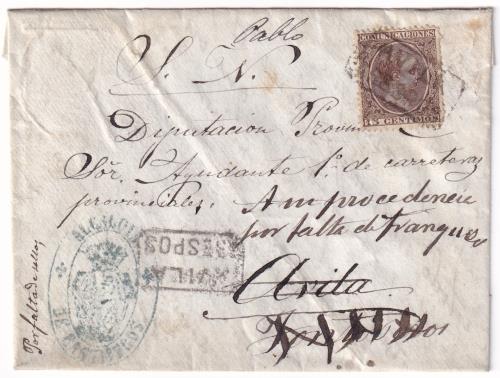 Pablo
S. N.
COMUNICACIONES
15 CENTIMOS
Diputacion Provin
Sõr Ayudante 1º de carreteras
provinciales. A mi procedencia
por falta de franqueo
AVILA
Avila
ALCALDIA
Por falta de sellos